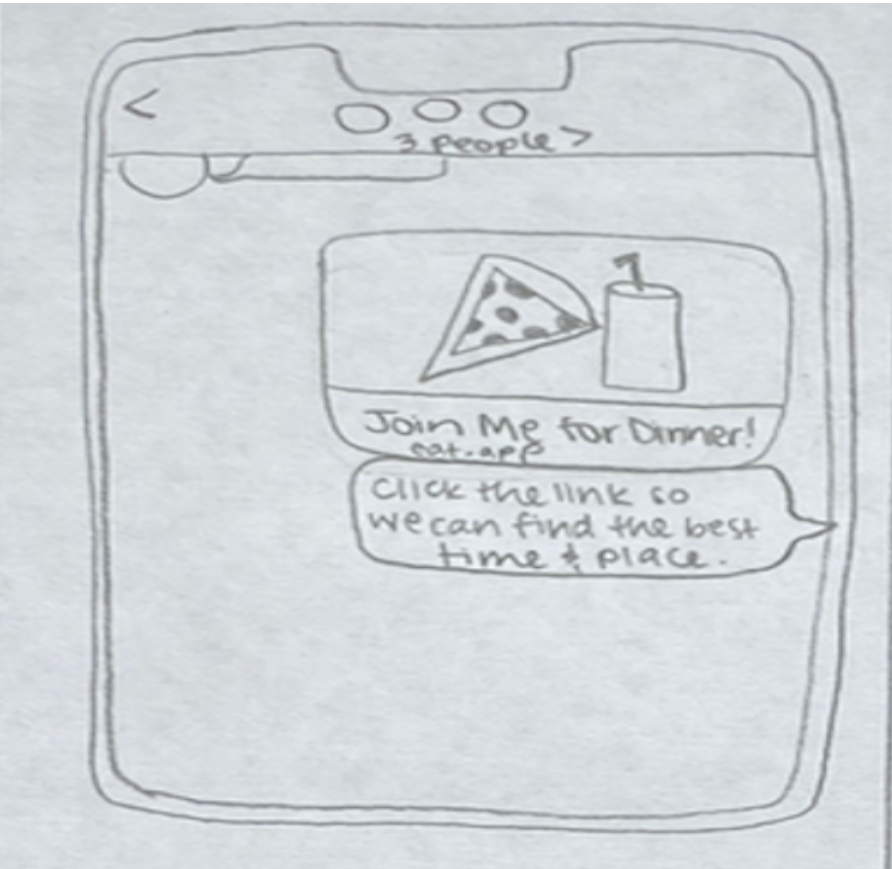 <
3 people >
Join Me for Dinner!
eat.app
Click the link so
we can find the best
time & place.